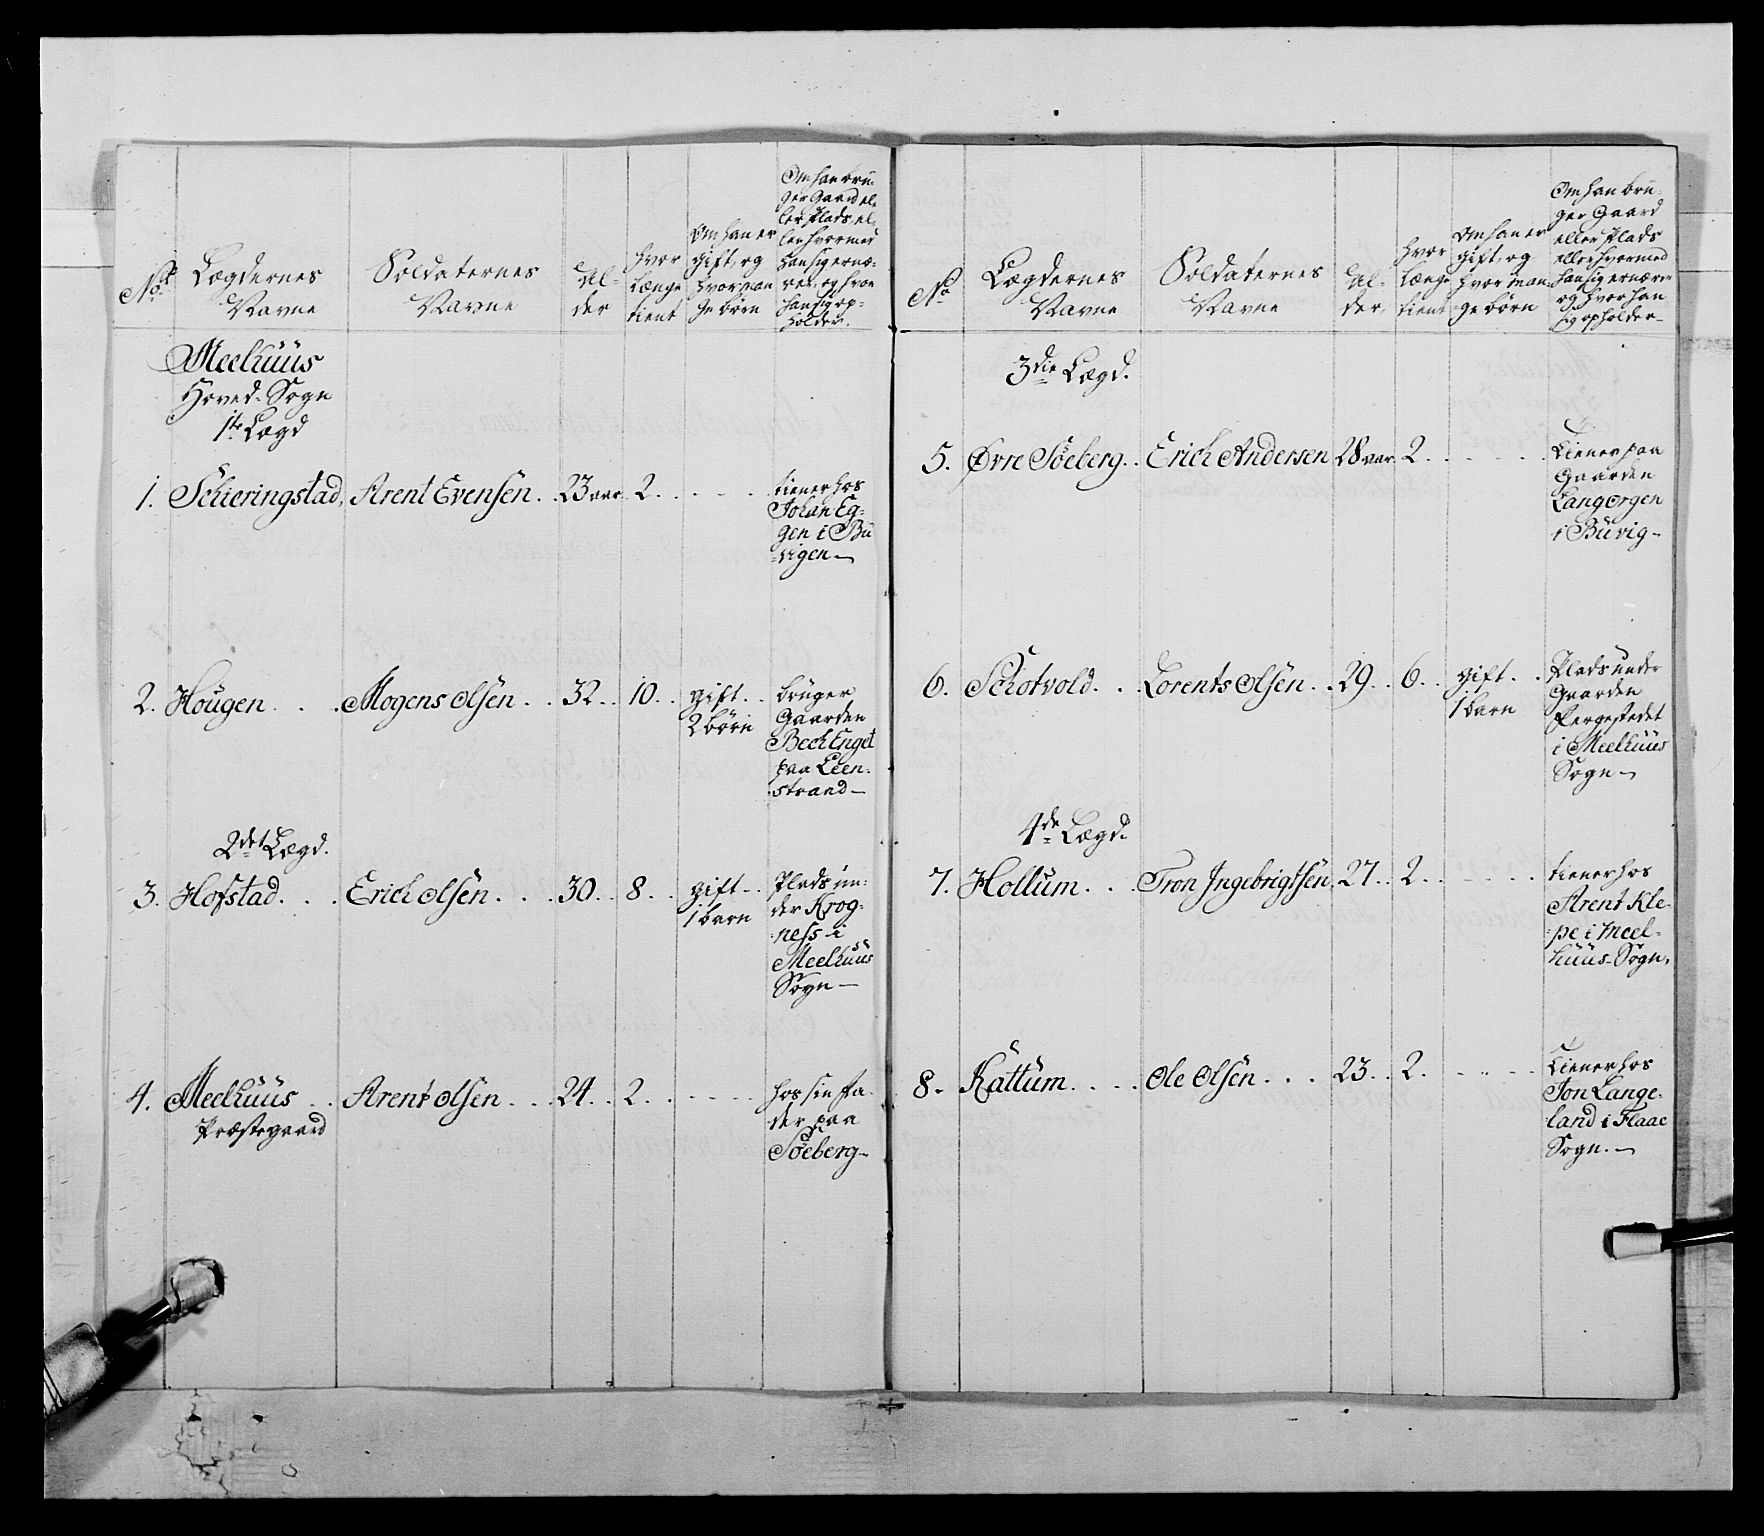 No.
Lægdernes
Navne
Soldaternes
Navne
Al-
der
hvor
længe
tient
Om han er
gift, og
hvor man
ge børn
Om han bru-
ger Gaard el-
ler Plads el-
ler hvormed
han sig ernæ-
rer, og hvor
han sig op-
holder.
Meelhüüs
Hoved-Sogn
1te Lægd
1. Schieringstad, Arent Evensen. . 23 aar 2. . . . .
tiener hos
Johan Eg-
gen i Bu
-vigen —
2. Hougen . . . Mogens Olsen . . 32 . . 10 . . gift . .
2 børn
brüger
Gaarden
Bech Enget
paa Leen-
strand —
2det Lægd.
3. Hofstad. . . Erich Olsen . . . 30 . . 8 . . gift . .
1 barn
Plads un-
der Krog-
ness i
Meelhuus
Sogn —
4. Meelhüüs . . Arent Olsen . . . 24 . . 2 . . . . .
Præstegaard
hos sin fa-
der paa
Söeberg-
No
Lægdernes
Navne
Soldaternes
Navne
Al-
der.
hvor
længe
tient
Om han er
gift, og
hvor man-
ge børn
Om han bru-
ger Gaard
eller Plads
eller hvormed
han sig ernærer
og hvor han
sig opholder-
3die Lægd.
5. Øvre Söeberg. . Erich Andersen 28 aar 2. . . . . .
tiener paa
Gaarden
Langørgen
i Büvig-
6. Schotvold. . . Lorents Olsen . . 29 . . 6 . . gift . .
1 barn
Plads under
Gaarden
i Meelhüüs
Sogn —
4de Lægd.
7. Hollum . . . Tron Ingebrigtsen. 27 . . 2 . . . . .
tiener hos
Arent Kle-
pe i Meel-
huus-Sogn,
8. Kattum . . . . Ole Olsen . . . 23 . . 2 . . . . .
tiener hos
Jon Lange-
land i Flaae
Sogn. —